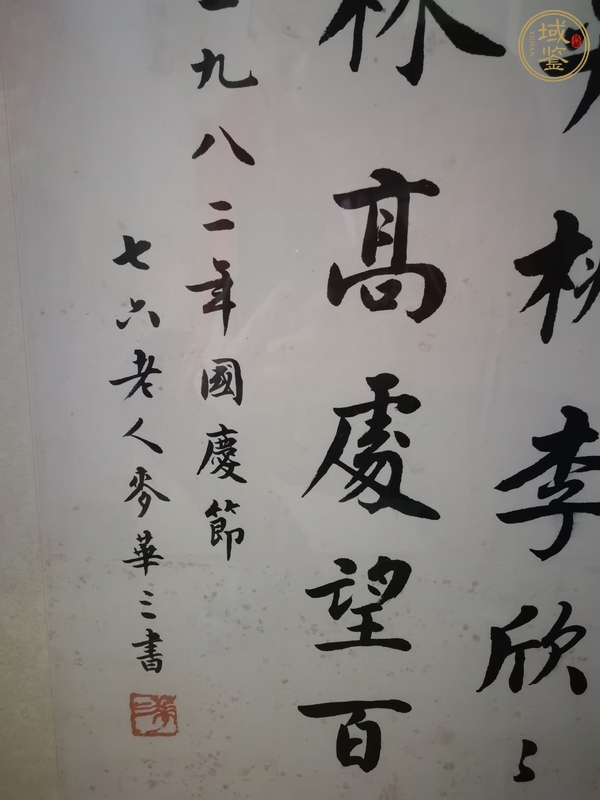 桃李欣〻
林高處望百
一九八二年國慶節
七六老人麥華三書
域鉴